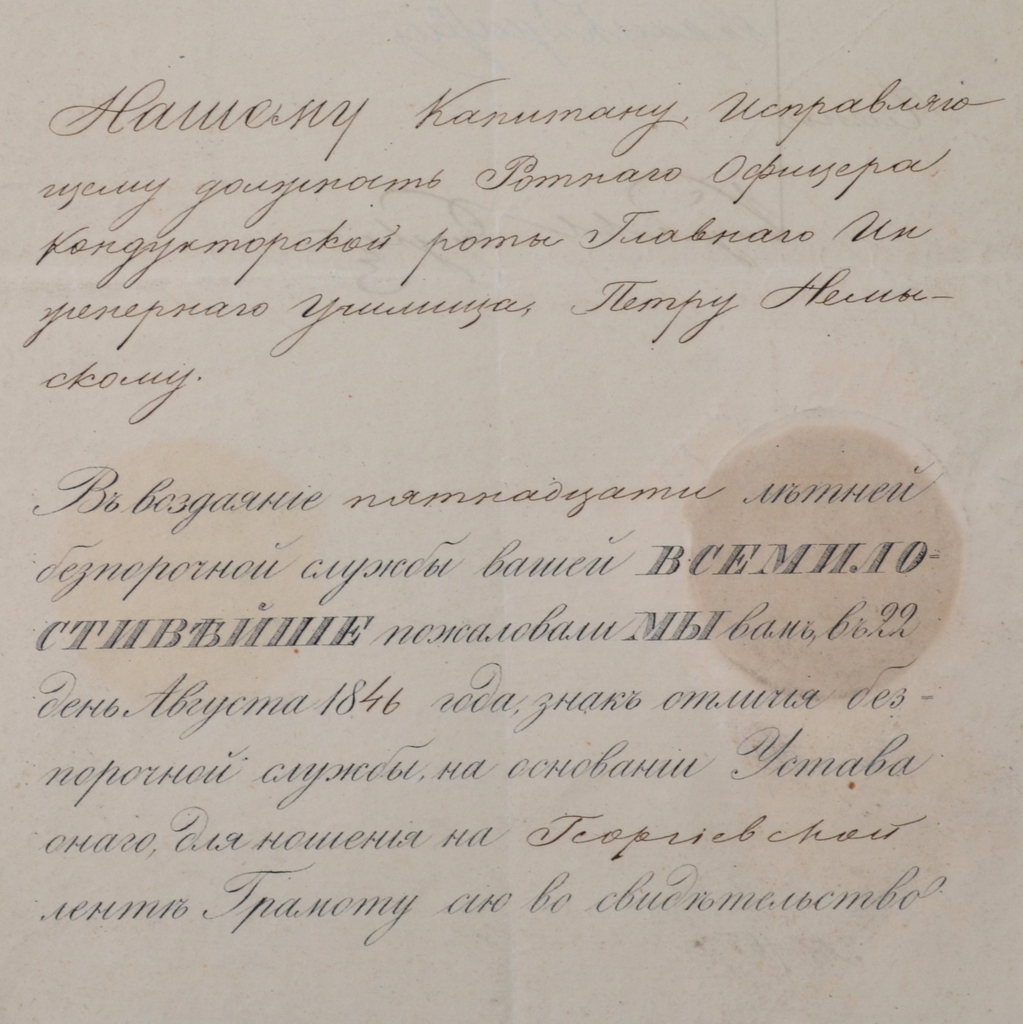 Нашему Капитану, Исправляю
щему должность Ротнаго Офицера,
Кондукторской роты Главнаго Ин
женернаго Училища, Петру Немы-
скому.
Въ воздаяніе пятнадцати лѣтней
безпорочной службы вашей ВСЕМИЛО=
СТИВѢЙШЕ пожаловали МЫ вамъ, въ 22
день Августа 1846 года, знакъ отличія без=
порочной службы, на основаніи Устава
онаго, для ношенія на Георгіевской
лентѣ Грамоту сію во свидѣтельство